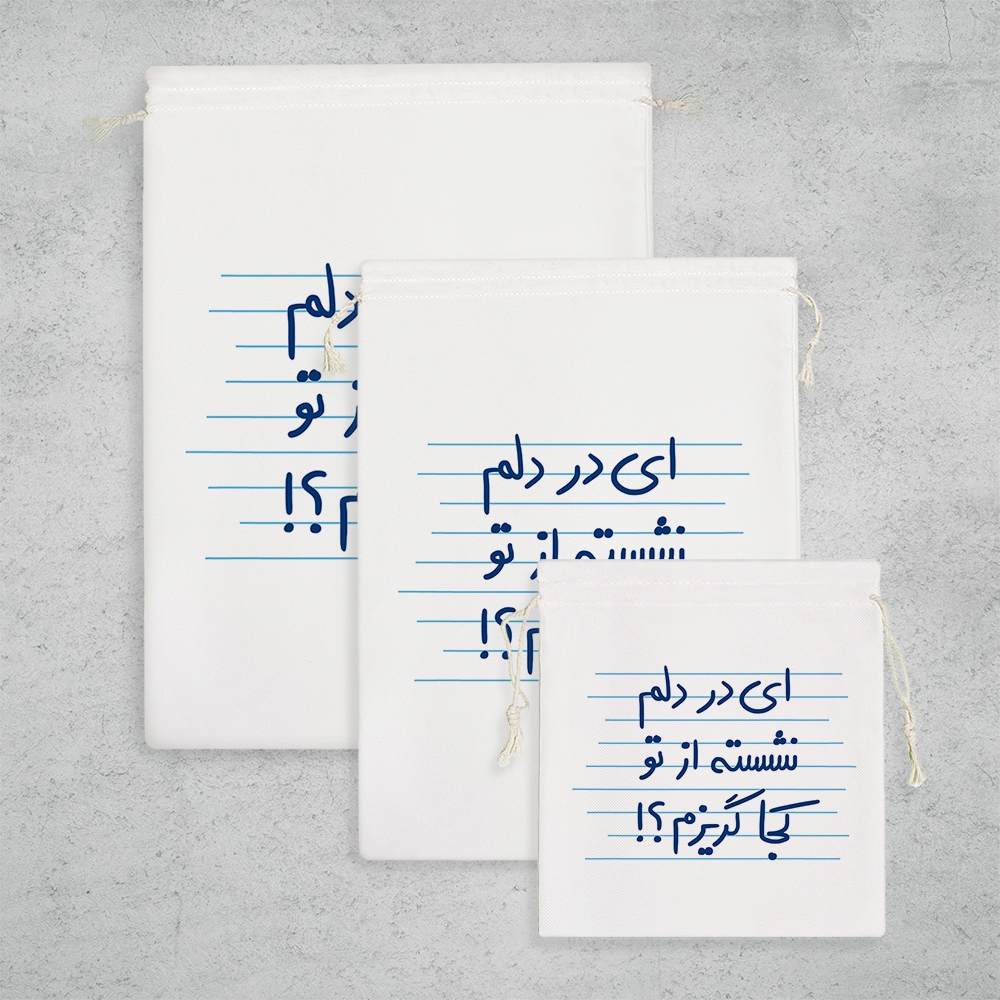 دلم
تو
م؟!
ای در دلم
نشسته از تو
م؟!
ای در دلم
نشسته از تو
کجا گریزم؟!